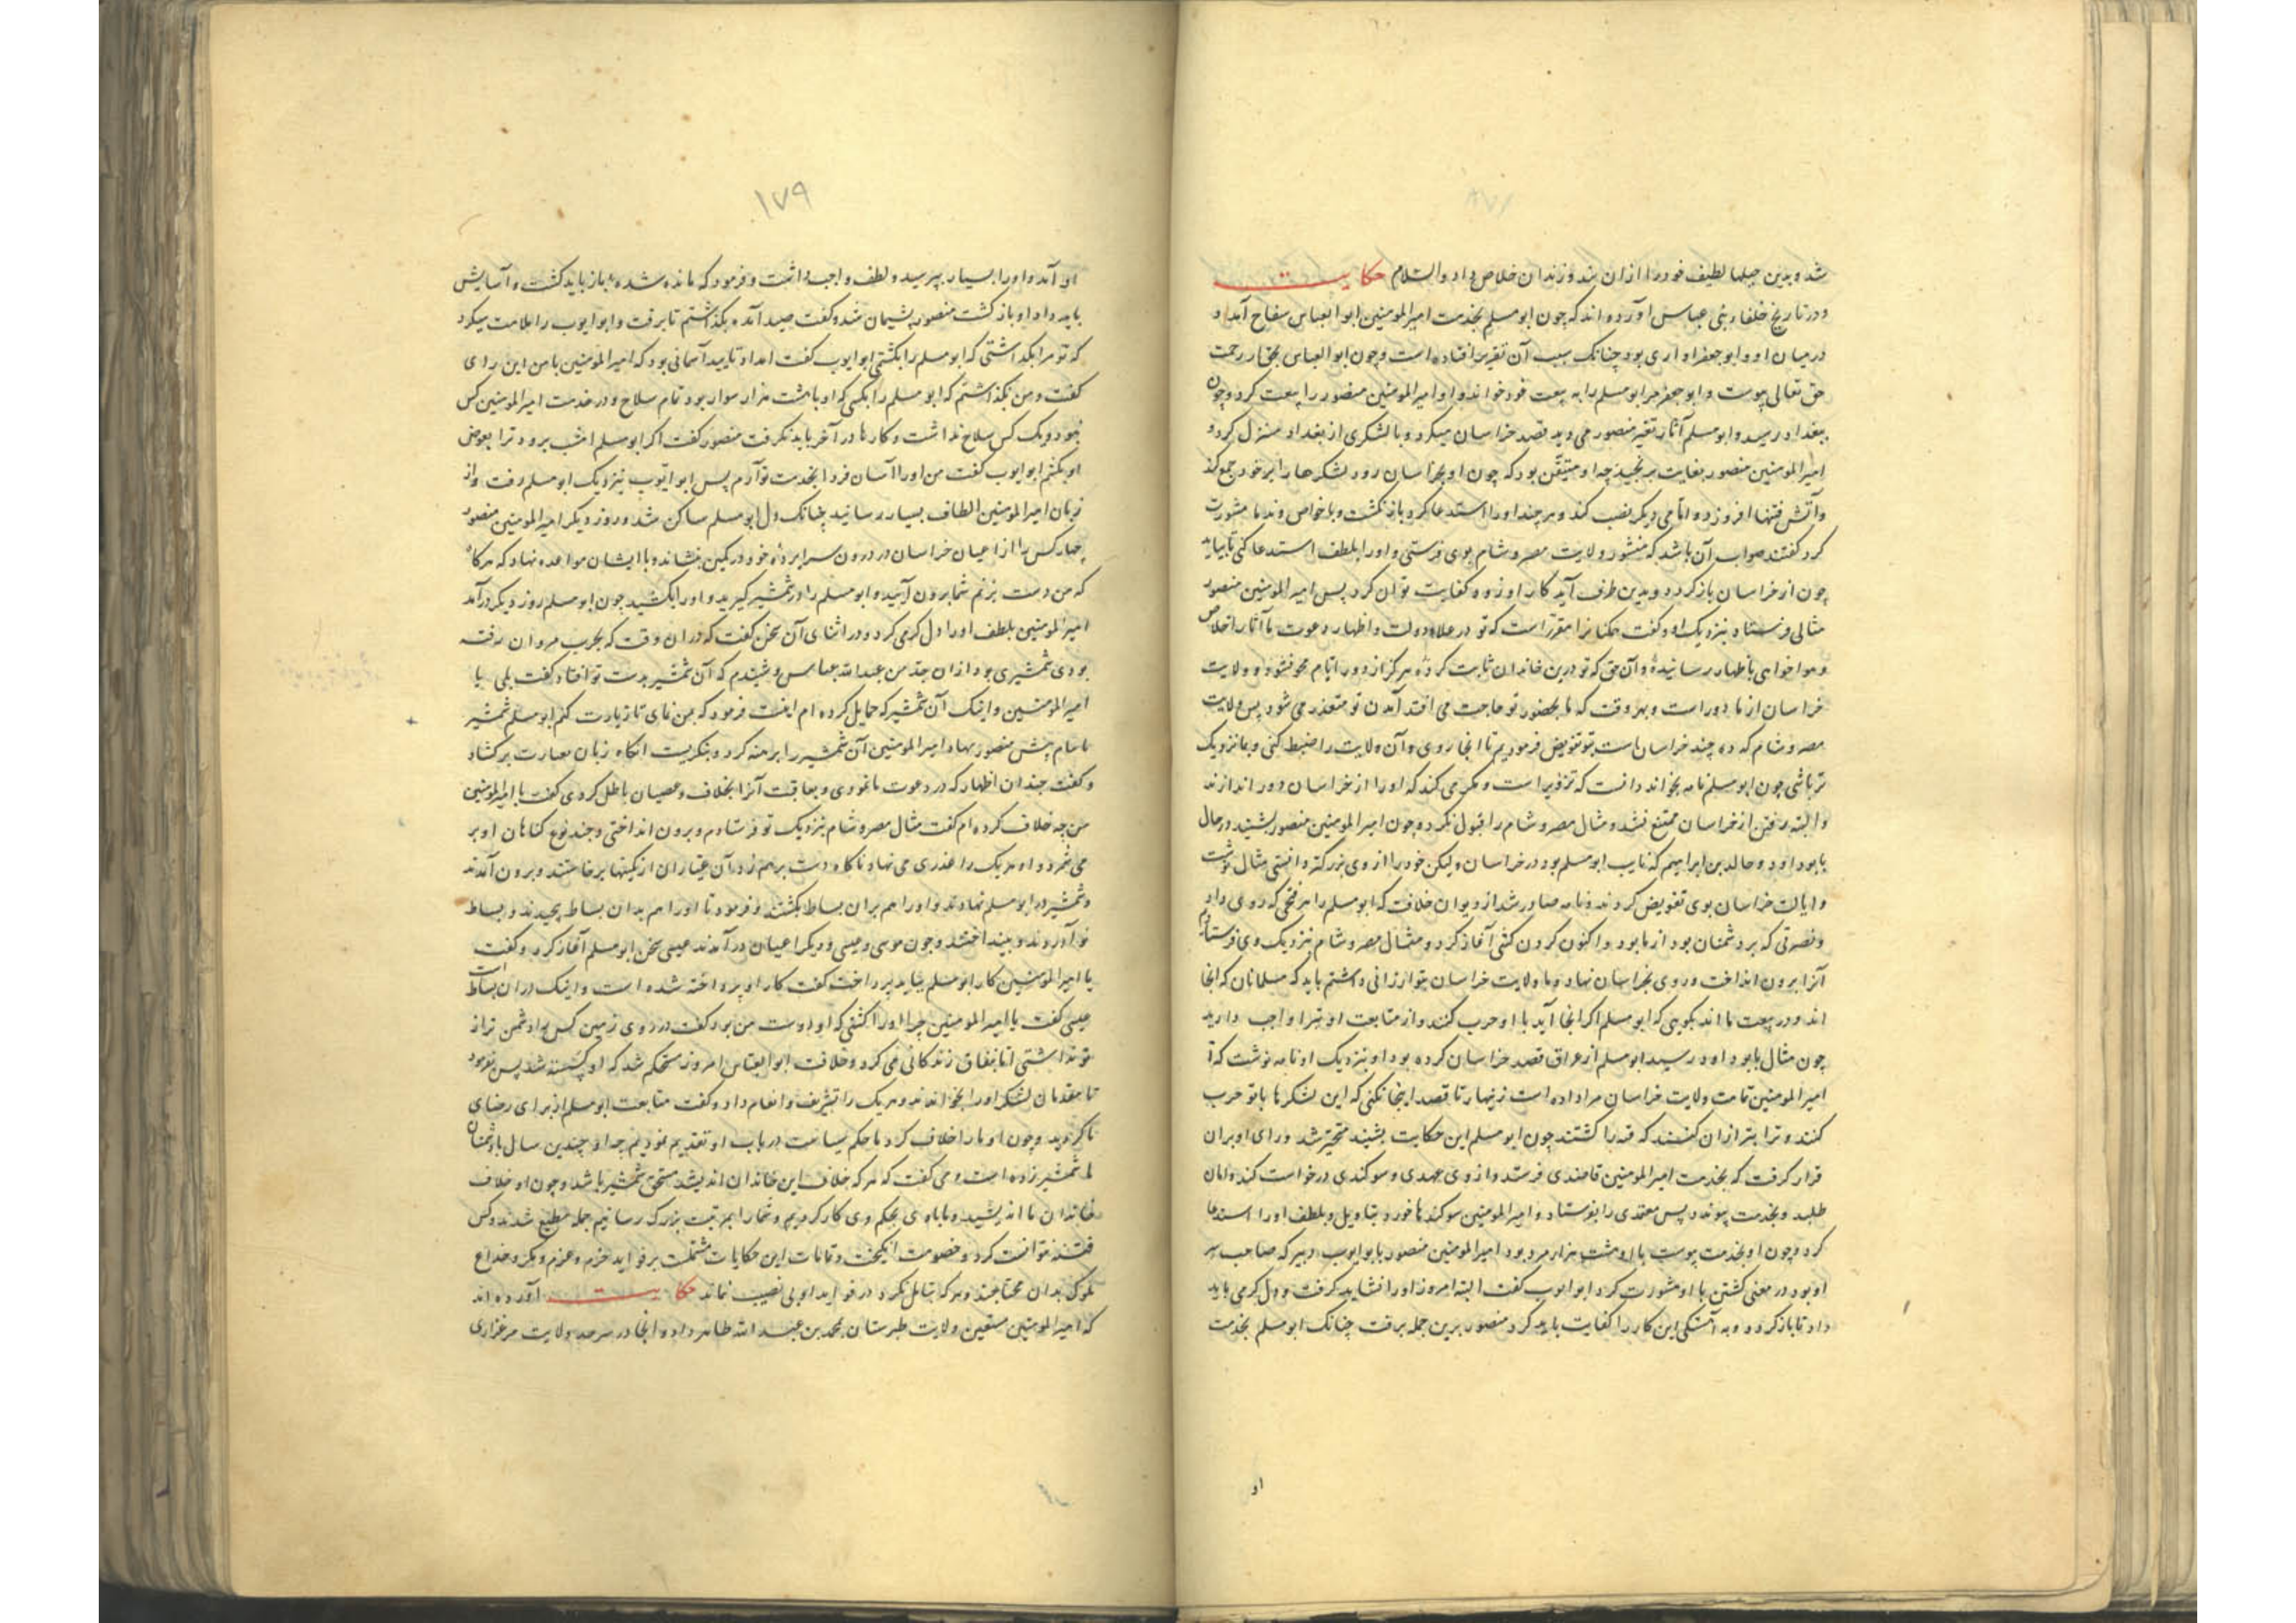 شد و بدین حیلها لطیف خود را ازان بند و زندان خلاص داد والسلام حکایت
و در تاریخ خلفاء بنی عباس آورده اند که چون ابو مسلم بخدمت امیر المومنین ابو العباس سفاح آمد و
در میان او و ابو جعفر اواری بود چنانک سبب آن تقریر افتاده است و چون ابو العباس بجوار رحمت
حق تعالی پیوست و ابو جعفر مر ابو مسلم را به بیعت خود خواند و او امیر المومنین منصور را بیعت کرد و چون
ببغداد رسید و ابو مسلم آثار تغیر منصور می دید قصد خراسان میکرد و با لشکری از بغداد منزل کرد و
امیر المومنین منصور بغایت برنجید چه او متیقن بود که چون او بخراسان رود لشکرها را بر خود جمع کند
و آتش فتنها افروزد و امامی دیگر نصب کند و هر چند او را استدعا کرد باز نگشت و با خواص و ندما مشورت
کرد گفتند صواب آن باشد که منشور ولایت مصر و شام بوی فرستی و او را بلطف استدعا کنی تا بیاید
چون از خراسان باز گردد و بدین طرف آید کار او زود کفایت توان کرد پس امیر المومنین منصور
مثالی فرستاد نزدیک او و گفت همکنانرا مقررست که تو در علاء دولت و اظهار دعوت ما آثار اخلاص
و هوا خواهی باظهار رسانیدهٔ و آن حق که تو درین خاندان ثابت کردهٔ هرگز از دور ایام محو نشود و ولایت
خراسان از ما دور است و بهر وقت که ما بحضور تو حاجت می افتد آمدن تو متعذر می شود پس ولایت
مصر و شام که ده چند خراسان است بتو تفویض فرمودیم تا انجا روی و آن ولایت را ضبط کنی و بما نزدیک
تر باشی چون ابو مسلم نامه بخواند دانست که تزویر است و مکر می کند که او را از خراسان دور اندازند
و البته رفتن از خراسان ممتنع نشد و مثال مصر و شام را قبول نکرد و چون امیر المومنین منصور بشنید در حال
بابو داود و خالد بن ابراهیم که نایب ابو مسلم بود در خراسان ولیکن خود را از وی بزرگتر دانستی مثال نوشت
و ایالت خراسان بوی تفویض کردند و نامه صادر شد از دیوان خلافت که ابو مسلم را هر فتحی که روی داد
و نصرتی که بر دشمنان بود از ما بود و اکنون گردن کشی آغاز کرد و مثال مصر و شام نزدیک وی فرستادم
آنرا برون انداخت و روی بخراسان نهاد و ما ولایت خراسان بتو ارزانی داشتم باید که مسلمانان که انجا
اند و در بیعت ما اند بگویی که ابو مسلم اگر انجا آید با او حرب کنند و از متابعت او تبرا واجب دارید
چون مثال بابو داود رسید ابو مسلم از عراق قصد خراسان کرده بود او بنزدیک او نامه نوشت که
امیر المومنین تمامت ولایت خراسان مرا داده است زنهار تا قصد اینجا نکنی که این لشکرها با تو حرب
کنند و ترا بتر ازان کشند که قبه را کشتند چون ابو مسلم این حکایت بشنید متحیر شد و رای او بران
قرار گرفت که بخدمت امیر المومنین قاصدی فرستد و از وی عهدی و سوگندی درخواست کند و امان
طلبد و بخدمت پیوند و پس معتمدی را بفرستاد و امیر المومنین سوگندها خورد بتاویل و بلطف او را استدعا
کرد و چون او بخدمت پیوست با او هشت هزار مرد بود امیر المومنین منصور با بو ایوب دبیر که صاحب سر
او بود در معنی کشتن با او مشورت کرد ابو ایوب گفت البته امروز او را نشاید گرفت و دل گرمی باید
داد تا باز گردد و به آهستگی این کار را کفایت باید کرد منصور برین جمله برفت چنانک ابو مسلم بخدمت
او
۱۷۹
او آمد و او را بسیار بپرسید و لطف واجب داشت و فرمود که مانده شده باز باید گشت و آسایش
باید داد او باز گشت منصور پشیمان شد و گفت صید آمده بگذاشتم تا برفت و ابو ایوب را ملامت میکرد
که تو مرا بگذاشتی که ابو مسلم را بکشتی ابو ایوب گفت امداد تایید آسمانی بود که امیر المومنین با من این رای
گفت و من نگذاشتم که ابو مسلم را بکشی که او با هشت هزار سوار بود تمام سلاح و در خدمت امیر المومنین کس
نبود و یک کس سلاح نداشت و کارها در آخر باید نگرفت منصور گفت اگر ابو مسلم امشب برود ترا بعوض
او بکشم ابو ایوب گفت من او را آسان فردا بخدمت تو آرم پس ابو ایوب بنزدیک ابو مسلم رفت و از
زبان امیر المومنین الطاف بسیار رسانید چنانک دل ابو مسلم ساکن شد و روز دیگر امیر المومنین منصور
چهار کس را از اعیان خراسان در درون سراپردهٔ خود در کمین بنشاند و با ایشان مواعده نهاد که هرگاه
که من دست بزنم شما برون آئید و ابو مسلم را در شمشیر گیرید و او را بکشید چون ابو مسلم روز دیگر درآمد
امیر المومنین بلطف او را دل گرمی کرد و در اثنای آن سخن گفت که دران وقت که بحرب مروان رفته
بودی شمشیری بود ازان جد من عبد الله عباس و شنیدم که آن شمشیر بدست تو افتاد گفت بلی یا
امیر المومنین و اینک آن شمشیر که حمایل کرده ام اینست فرمود که بمن نمای تا زیارت کنم ابو مسلم شمشیر
با نیام پیش منصور نهاد امیر المومنین آن شمشیر را برهنه کرد و بنگریست انگاه زبان بعبارت برگشاد
و گفت چندان اظهار که در دعوت ما نمودی و بعاقبت آنرا بخلاف و عصیان باطل کردی گفت یا امیر المومنین
من چه خلاف کرده ام گفت مثال مصر و شام بنزدیک تو فرستادم و برون انداختی و چند نوع گناهان او بر
می شمرد و او هر یک را عذری می نهاد ناگاه دست برهم زد آن عیاران از کمینها برخاستند و برون آمدند
و شمشیر در ابو مسلم نهادند و او را هم بران بساط بکشتند و فرمود تا او را هم بدان بساط پیچیدند و بساط
نو آوردند و بینداختند و چون موسی و عیسی و دیگر اعیان درآمدند عیسی سخن ابو مسلم آغاز کرد و گفت
یا امیر المومنین کار ابو مسلم بباید پرداخت گفت کار او پرداخته شده است و اینک دران بساط است
عیسی گفت یا امیر المومنین چرا او را کشتی که او دوست من بود گفت در روی زمین کس بود دشمن تر از
تو نداشتی اما بنفاق زندگانی می کرد و خلافت ابو العباس امروز مستحکم شد که او کشته شد پس بفرمود
تا مقدمان لشکر او را بخواندند و هر یک را تشریف و انعام داد و گفت متابعت ابو مسلم از برای رضای
ما کردید و چون او ما را خلاف کرد ما حکم سیاست در باب او تقدیم نمودیم چه او چندین سال با دشمنان
ما شمشیر زده است و می گفت که هر که خلاف این خاندان اندیشد مستحق شمشیر باشد و چون او خلاف
خاندان ما اندیشید ما با وی بحکم وی کار کردیم و شما را بمرتبت بزرگ رسانیم جمله مطیع شدند و کس
فتنه نتوانست کرد و خصومت انگیخت و تمامت این حکایات مشتملست بر فواید حزم و عزم و مکر و خداع
ملوک بدان محتاجند و هر که تامل نگرد در فواید او بی نصیب نماند حکایت آورده اند
که امیر المومنین مستعین ولایت طبرستان بمحمد بن عبد الله طاهر داد و انجا در سرحد ولایت مرغزاری